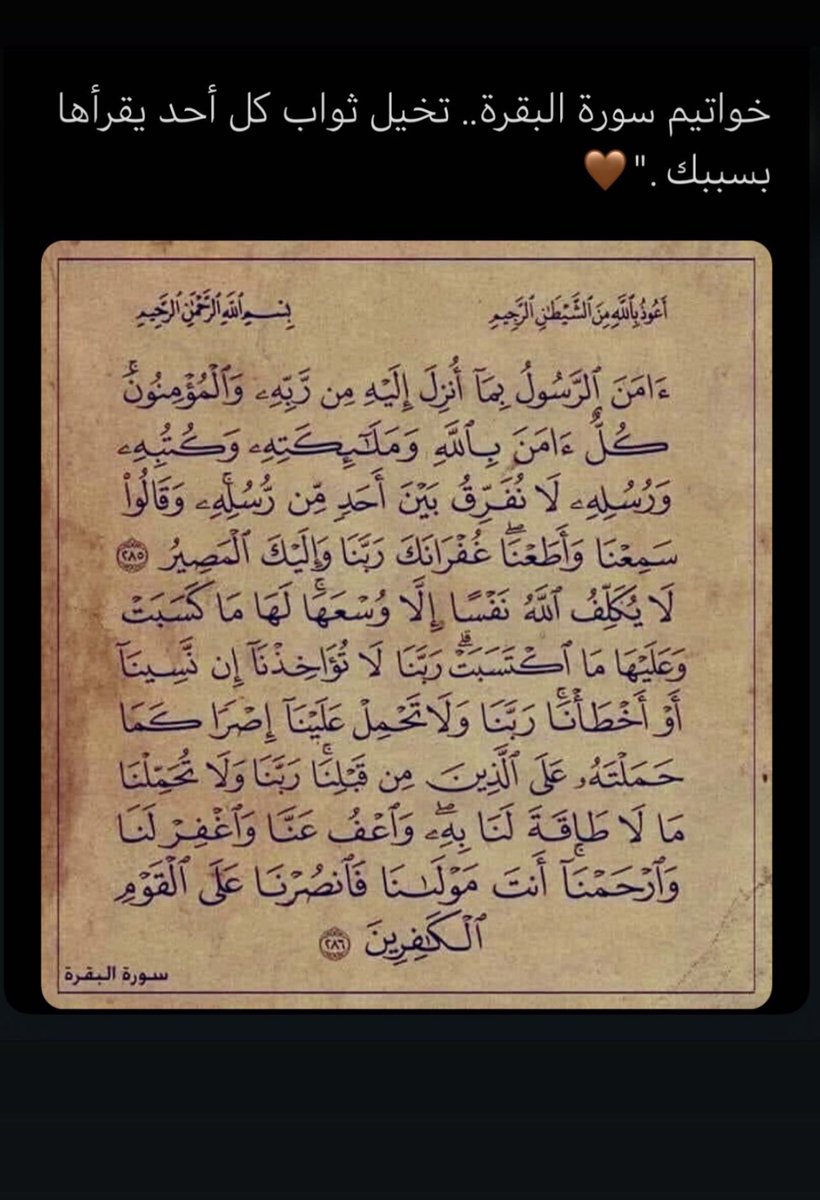 خواتيم سورة البقرة.. تخيل ثواب كل أحد يقرأها
بسببك ."🤎
أَعُوذُ بِاللَّهِ مِنَ الشَّيْطَانِ الرَّجِيمِ بِسْمِ اللَّهِ الرَّحْمَٰنِ الرَّحِيمِ
ءَامَنَ ٱلرَّسُولُ بِمَآ أُنزِلَ إِلَيْهِ مِن رَّبِّهِۦ وَٱلْمُؤْمِنُونَۚ
كُلٌّ ءَامَنَ بِٱللَّهِ وَمَلَٰٓئِكَتِهِۦ وَكُتُبِهِۦ
وَرُسُلِهِۦ لَا نُفَرِّقُ بَيْنَ أَحَدٍ مِّن رُّسُلِهِۦۚ وَقَالُوا۟
سَمِعْنَا وَأَطَعْنَاۖ غُفْرَانَكَ رَبَّنَا وَإِلَيْكَ ٱلْمَصِيرُ ٢٨٥
لَا يُكَلِّفُ ٱللَّهُ نَفْسًا إِلَّا وُسْعَهَاۚ لَهَا مَا كَسَبَتْ
وَعَلَيْهَا مَا ٱكْتَسَبَتْۗ رَبَّنَا لَا تُؤَاخِذْنَآ إِن نَّسِينَآ
أَوْ أَخْطَأْنَاۚ رَبَّنَا وَلَا تَحْمِلْ عَلَيْنَآ إِصْرًا كَمَا
حَمَلْتَهُۥ عَلَى ٱلَّذِينَ مِن قَبْلِنَاۚ رَبَّنَا وَلَا تُحَمِّلْنَا
مَا لَا طَاقَةَ لَنَا بِهِۦۖ وَٱعْفُ عَنَّا وَٱغْفِرْ لَنَا
وَٱرْحَمْنَآۚ أَنتَ مَوْلَىٰنَا فَٱنصُرْنَا عَلَى ٱلْقَوْمِ
ٱلْكَٰفِرِينَ ٢٨٦
سورة البقرة